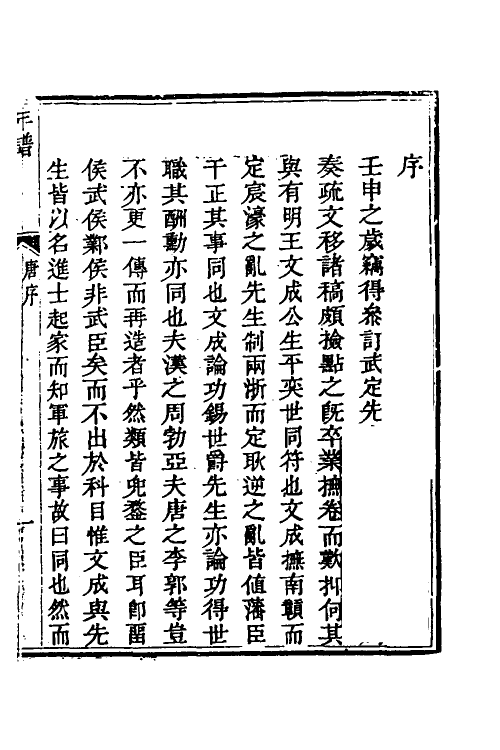 序
壬申之歲竊得叅訂武定先
奏疏文移諸稿頗撿點之旣卒業撫卷而歎抑何其
與有明王文成公生平奕世同符也文成撫南贛而
定宸濠之亂先生制兩浙而定耿逆之亂皆値藩臣
干正其事同也文成論功錫世爵先生亦論功得世
職其酬勳亦同也夫漢之周勃亞夫唐之李郭等豈
不亦更一傳而再造者乎然類皆兜鍪之臣耳卽留
侯武侯鄴侯非武臣矣而不出於科目惟文成與先
生皆以名進士起家而知軍旅之事故曰同也然而
年譜
唐序
一